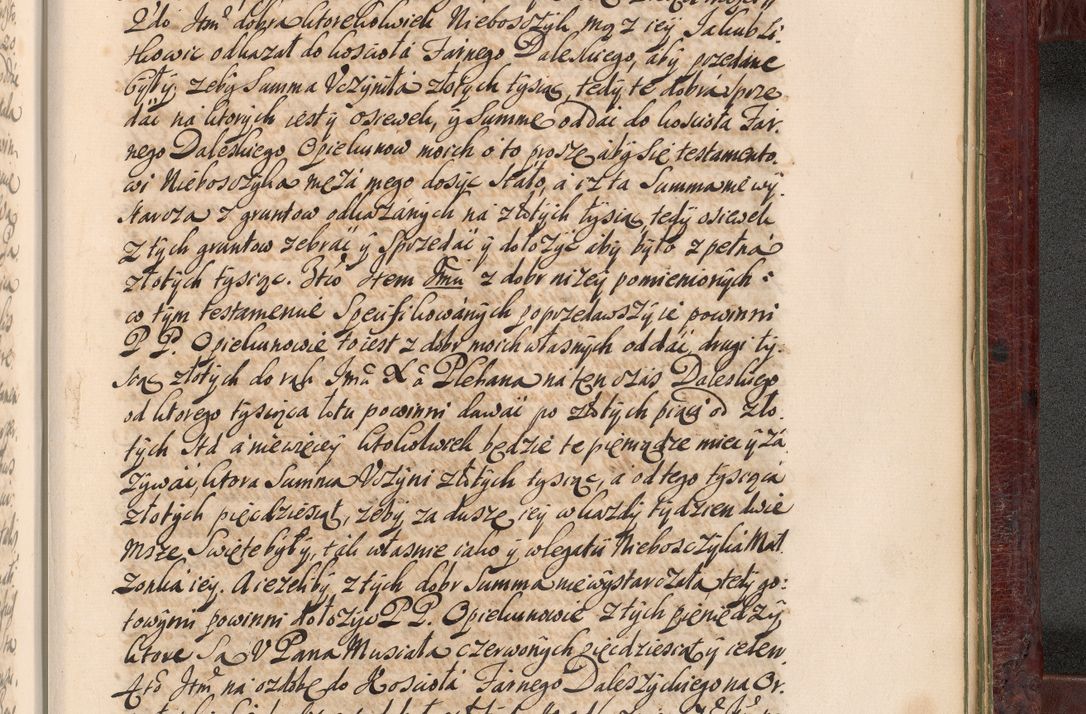 2do Itm̃ dobra ktorekolwiek Nieboszczyk mąz iey Jakub Li-
tkowic odkazał do kosciola Farnego Daleskiego, aby przedane
były, zeby Summa Vczyniła złotych tysiąc, tedy te dobrá sprze
dai na ktorych iest y osiewek, y Summe oddai do kosciola Far-
nego Daleskiego Opiekunow moich o to prosze aby się testamento-
wi Nieboszczyka męzá mego dosyc stało, a iz ta Summa nie wy-
starcza z gruntow odkazanych ná złotych tysiąc, tedy osiewek
z tych gruntow zebrai y Sprzedai y dołozyc aby było zpełná
złotych tysiąc. 3tio Item Jmu z dobr nizey pomienionych
w tym testamencie Specifikowánych poprzedawszy ie, powinni
P P. Opiekunowie to iest z dobr moich własnych oddai, drugi ty-
siąc złotych do rąk Jmci Xa Plebana na ten czás Daleskiego
od ktorego tysiąca lotu powinni dawai po złotych pięci od zło-
tych Sta a niewięcey ktokolwiek będzie te pieniądze miec y zá
zywai, ktora Summa Vczyni złotych tysiąc, a od tego tysiąca
złotych pięcdziesiąt, zeby za duszę iey w kazdy tydzien dwie
Msze Swięte były, tak własnie iako y w legatii Nieboszczyka Mał
zonka iey. A iezeliby, z tych dobr Summa nie wystarczała tedy go-
towymi powinni dołozyc P P. Opiekunowie z tych pieniędzy
ktore Są V Pana Musiała czerwonych pięcdziesiąt y ieden
4to Itm̃ na ozdobę do Kosciolá Farnego Daleszyckiego na Or-